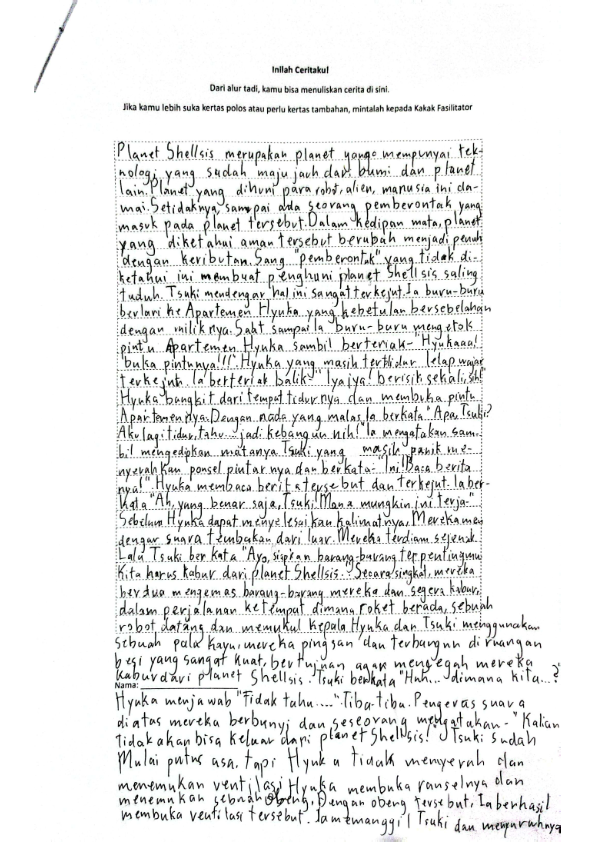 Inilah Ceritaku!
Dari alur tadi, kamu bisa menuliskan cerita di sini.
Jika kamu lebih suka kertas polos atau perlu kertas tambahan, mintalah kepada Kakak Fasilitator
Planet Shellsis merupakan planet yange mempunyai tek-
nologi yang sudah maju jauh dari bumi dan planet
lain. Planet yang dihuni para robot, alien, manusia ini da-
mai. Setidaknya, sampai ada seorang pemberontak yang
masuk pada planet tersebut. Dalam kedipan mata, planet
yang diketahui aman tersebut berubah menjadi penuh
dengan keributan. Sang "pemberontak" yang tidak di-
ketahui ini membuat penghuni planet Shellsis saling
tuduh. Tsuki mendengar hal ini sangat terkejut. Ia buru-buru
berlari ke Apartemen Hyuka yang kebetulan bersebelahan
dengan miliknya. Saat sampai Ia buru-buru mengetok
pintu Apartemen Hyuka sambil berteriak- "Hyukaaa!
buka pintunya!!!". Hyuka yang masih tertidur lelap wajar
terkejut. Ia berteriak balik- "Iyaiya! berisik sekali, sih!"
Hyuka bangkit dari tempat tidurnya dan membuka pintu
Apartemennya. Dengan nada yang malas, Ia berkata "Apa, Tsuki?
Aku lagi tidur, tahu... jadi kebangun nih!" Ia mengatakan sam-
bil mengedipkan matanya. Tsuki yang masih panik me-
nyerahkan ponsel pintarnya dan berkata- "Ini! Baca berita
nya!" Hyuka membaca berita tersebut dan terkejut. Ia ber-
kata "Ah, yang benar saja, Tsuki! Mana mungkin ini terja-"
Sebelum Hyuka dapat menyelesaikan kalimatnya, Mereka men
dengar suara tembakan dari luar. Mereka terdiam sejenak.
Lalu Tsuki berkata "Ayo, siapkan barang-barang terpentingmu
Kita harus kabur dari planet Shellsis." Secara singkat, mereka
berdua mengemas barang-barang mereka dan segera kabur.
dalam perjalanan ketempat dimana roket berada, sebuah
robot datang dan memukul kepala Hyuka dan Tsuki menggunakan
sebuah palu kayu. mereka pingsan dan terbangun di ruangan
besi yang sangat kuat, bertujuan agar mencegah mereka
kabur dari planet Shellsis. Tsuki berkata "Huh... dimana kita...?"
Nama:
Hyuka menjawab "Tidak tahu....". Tiba-tiba. Pengeras suara
diatas mereka berbunyi dan seseorang mengatakan- "Kalian
tidak akan bisa keluar dari planet Shellsis!" Tsuki sudah
Mulai putus asa. tapi Hyuka tidak menyerah dan
menemukan ventilasi. Hyuka membuka ranselnya dan
menemukan sebuah obeng. Dengan obeng tersebut, Ia berhasil
membuka ventilasi tersebut. Ia memanggil Tsuki dan menyuruhnya